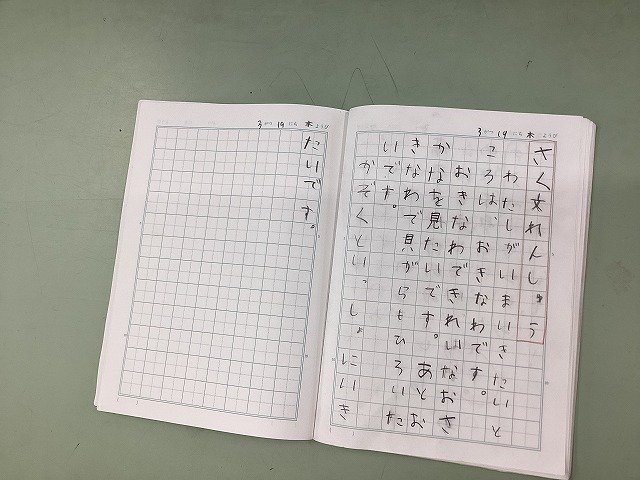 3がつ19にち木ようび
さく文れんしゅう
わたしがいまいきたいと
ころは、おきなわです。
おきなわできれいなおさ
かなを見たいです。あとお
きなわで貝がらもひろいた
いです。
かぞくといっしょにいき
3がつ19にち木ようび
たいです。